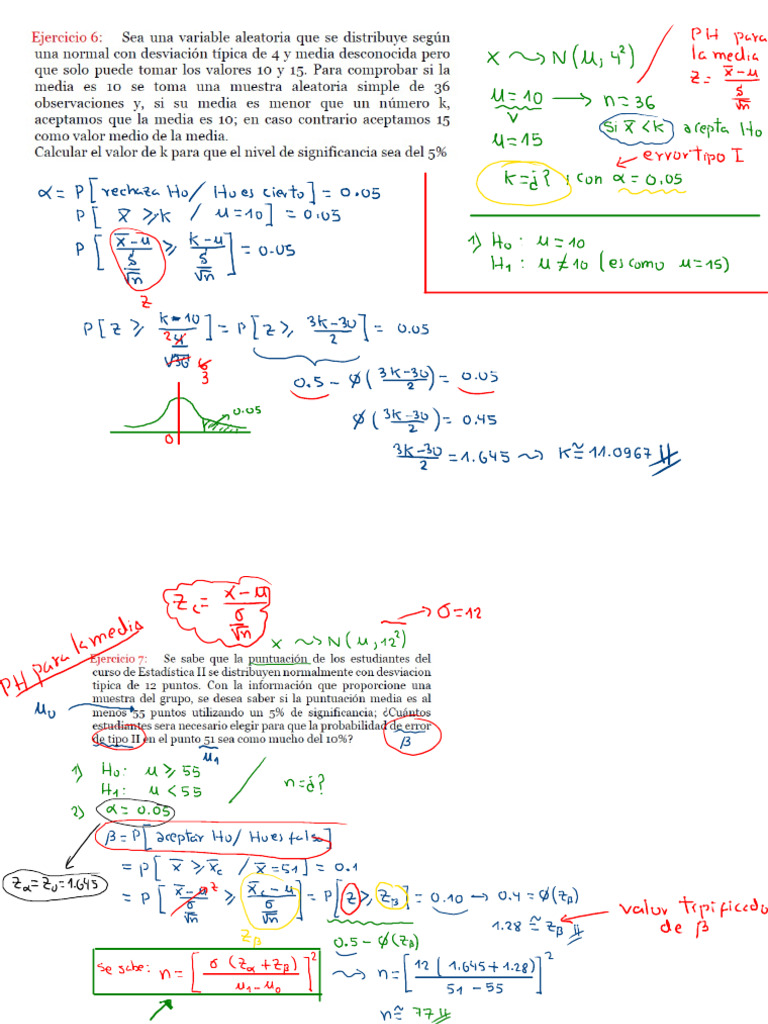 Ejercicio 6: Sea una variable aleatoria que se distribuye según
una normal con desviación típica de 4 y media desconocida pero
que solo puede tomar los valores 10 y 15. Para comprobar si la
media es 10 se toma una muestra aleatoria simple de 36
observaciones y, si su media es menor que un número k,
aceptamos que la media es 10; en caso contrario aceptamos 15
como valor medio de la media.
Calcular el valor de k para que el nivel de significancia sea del 5%
PH para
la media
Z = (x̄-μ)/(S/√n)
x ⤳ N(μ, 4²)
μ = 10 → n = 36
v
μ = 15
si x̄ < k acepta Ho
error tipo I
k = ¿? ; con α = 0.05
1) Ho: μ = 10
H1: μ ≠ 10 (es como μ = 15)
α = P[rechaza Ho / Ho es cierto] = 0.05
P[x̄ ≥ k / μ = 10] = 0.05
P[(x̄-μ)/(S/√n) ≥ (k-μ)/(S/√n)] = 0.05
z
P[Z ≥ (k-10)/(4/√36)] = P[Z ≥ (3k-30)/2] = 0.05
2 6 3
0.5 - φ((3k-30)/2) = 0.05
0.05
0
φ((3k-30)/2) = 0.45
(3k-30)/2 = 1.645 ⤳ k ≅ 11.0967 //
Zc = (x-μ)/(σ/√n)
→ σ = 12
x ⤳ N(μ, 12²)
PH para la media
Ejercicio 7: Se sabe que la puntuación de los estudiantes del
curso de Estadística II se distribuyen normalmente con desviacion
tipica de 12 puntos. Con la información que proporcione una
muestra del grupo, se desea saber si la puntuación media es al
menos 55 puntos utilizando un 5% de significancia; ¿Cuántos
estudiantes sera necesario elegir para que la probabilidad de error
de tipo II en el punto 51 sea como mucho del 10%?
μ0
μ1
β
1) Ho: μ ≥ 55
H1: μ < 55
n = ¿?
2) α = 0.05
β = P[aceptar Ho / Ho es falsa]
= P[x̄ ≥ x̄c / x̄ = 51] = 0.1
Zα = Z0 = 1.645
= P[(x̄-μ)/(σ/√n) ≥ (x̄c-μ)/(σ/√n)] = P[Z ≥ Zβ] = 0.10 → 0.4 = φ(Zβ)
z
Zβ
1.28 ≅ Zβ //
valor tipificado
de β
0.5 - φ(Zβ)
se sabe: n = [σ(Zα+Zβ)/(μ1-μ0)]² ⤳ n = [12(1.645+1.28)/(51-55)]²
n ≅ 77 //